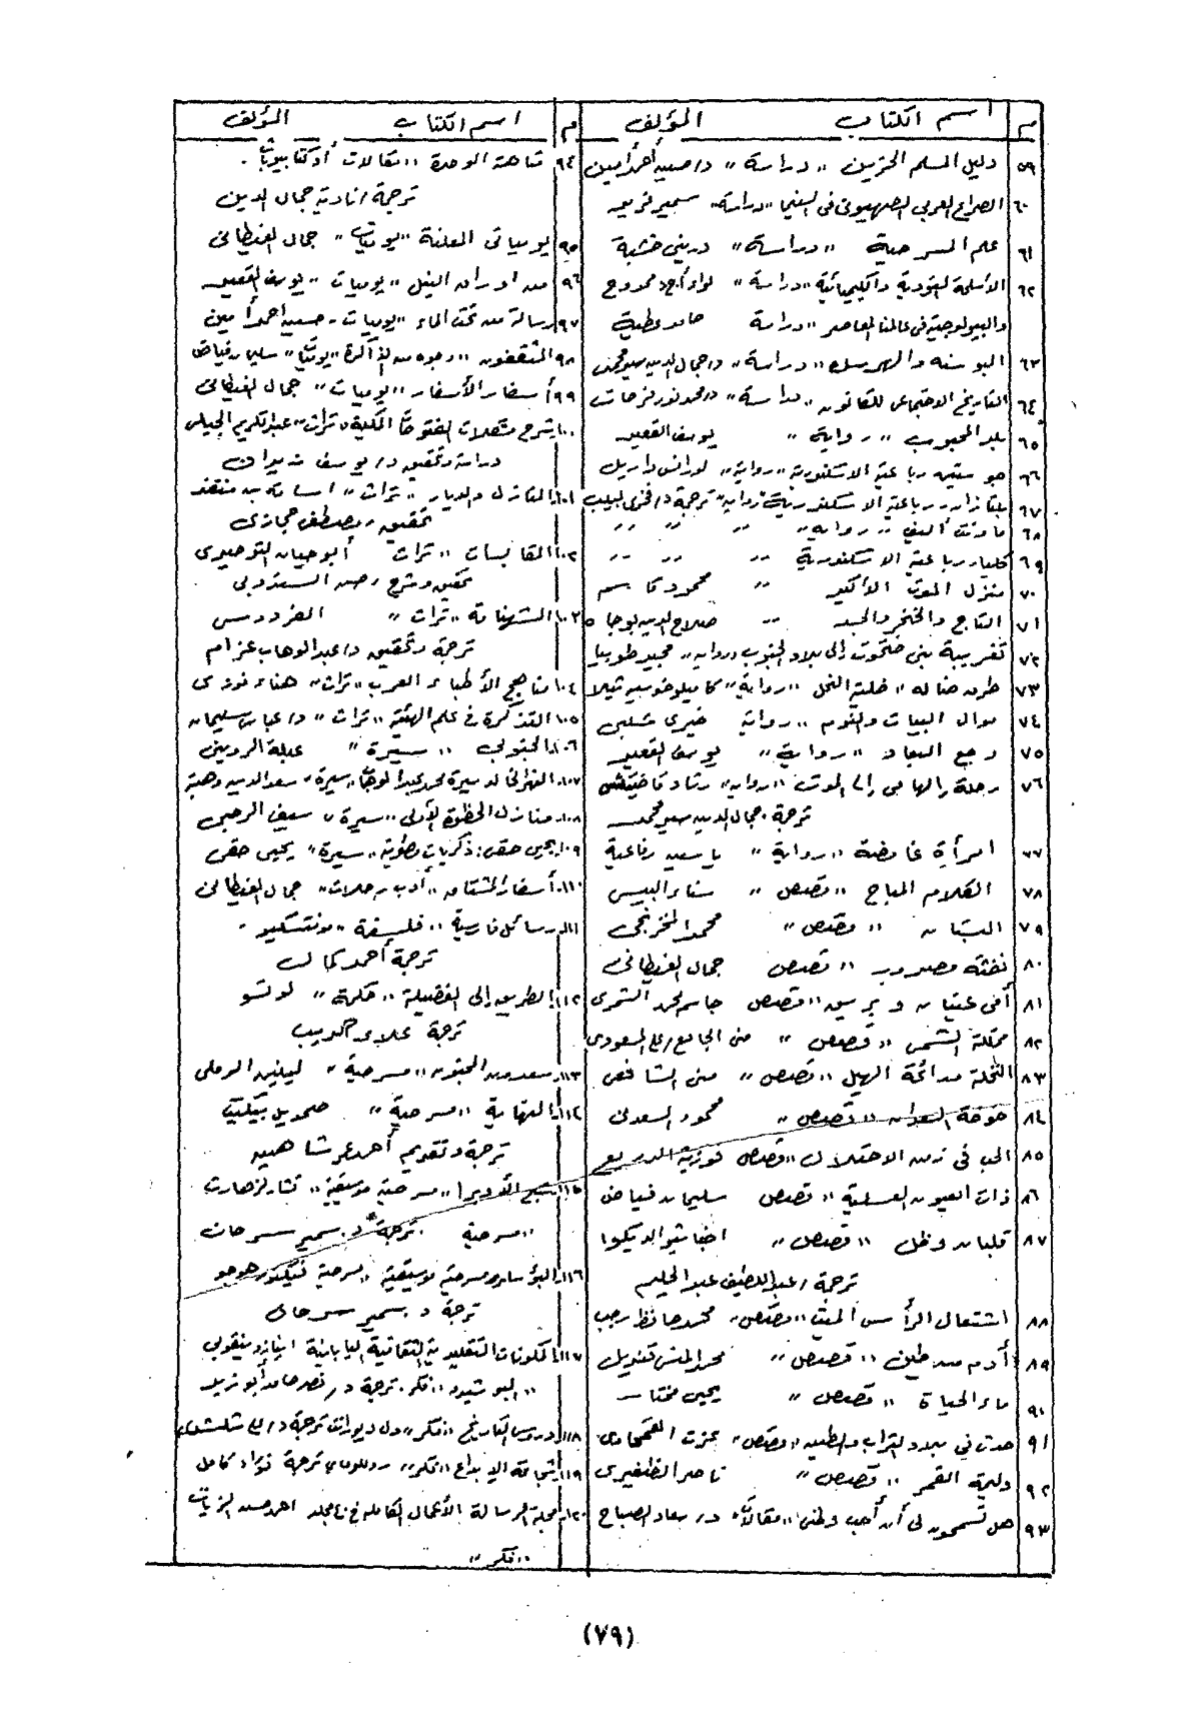 م اسم الكتاب المؤلف
٥٩ دليل المسلم الحزين "دراسة" د/حسين أحمد أمين
٦٠ الصراع العربى الصهيونى فى السينما "دراسة" سمير فريد
٦١ علم المسرحية "دراسة" درينى خشبة
٦٢ الأسلحة النووية والكيميائية "دراسة" لواء أ.ح/ ممدوح
والبيولوجية فى عالمنا المعاصر "دراسة حامد عطية
٦٣ البوسنة والهرسك "دراسة" د/جمال الدين سيد محمد
٦٤ التاريخ الاجتماعى للقانون "دراسة" د/محمد نور فرحات
٦٥ بلد المحبوب "رواية" يوسف القعيد
٦٦ جوستين رباعية الاسكندرية "رواية" لورانس داريل
٦٧ بلتازار رباعية الاسكندرية "رواية" ترجمة د/فخرى لبيب
٦٨ ماونت أليف "رواية" " " "
٦٩ كليا رباعية الاسكندرية " " "
٧٠ منزل الموت الأكيد " محمود قاسم
٧١ التاج والخنجر والجسد " صلاح الدين بوجاه
٧٢ تغريبة بنى حتحوت إلى بلاد الجنوب "رواية" مجيد طوبيا
٧٣ طريق خاله "خلية النحل "رواية" كاميلو خوسيه ثيلا
٧٤ موال البيات والنوم "رواية خيرى شلبى
٧٥ وجع البعاد "رواية" يوسف القعيد
٧٦ رحلة إلهامى إلى الموت "رواية" رشاد
ترجمة. جمال الدين سيد محمد
٧٧ امرأة غامضة "رواية" ياسين رفاعية
٧٨ الكلام المباح "قصص" سناء البيسى
٧٩ البستان "قصص" محمد المخزنجى
٨٠ نفثة مصدور "قصص جمال الغيطانى
٨١ أنى عتيان و "قصص جاسم محمد الشمرى
٨٢ مملكة الشمس "قصص" منى الجامع/ السعودى
٨٣ النخلة ورائحة الهيل "قصص" منى الشافعى
٨٤ خوخة السعدان "قصص" محمود السعدنى
٨٥ الحب فى زمن الاحتلال "قصص فوزية الدريع
٨٦ ذات العيون العسلية "قصص سليمان فياض
٨٧ قلبان وظل "قصص" اخناتيو الديكوا
ترجمة/ عبد اللطيف عبد الحليم
٨٨ اشتعال الرأس الميت "قصص" محمد حافظ رجب
٨٩ أدم من طين "قصص" محمد المنسى قنديل
٩٠ ماء الحياة "قصص" يحيى مختار
٩١ حدث فى بلاد التراب والطين "قصص" عزت القمحاوى
٩٢ وليمة القمر "قصص" ناصر الظفيرى
٩٣ هل تسمحون لى أن أحب وطنى "مقالات" د/ سعاد الصباح
م اسم الكتاب المؤلف
٩٤ متاهة الوحدة "مقالات أوكتافيو باث.
ترجمة/ نادية جمال الدين
٩٥ يومياتى المعلنة "يوميات" جمال الغيطانى
٩٦ من أوراق النيل "يوميات" يوسف القعيد
٩٧ رسالة من تحت الماء "يوميات- حسين احمد أمين
٩٨ المثقفون "وجوه من الذاكرة "يوميات" سليمان فياض
٩٩ أسفار الأسفار "يوميات" جمال الغيطانى
١٠٠ شرح مشكلات الفتوحات المكية "تراث" عبد الكريم الجيلى
دراسة وتحقيق د/ يوسف زيدان
١٠١ المنازل والديار "تراث" أسامة بن منقذ
تحقيق- مصطفى حجازى
١٠٢ المقابسات "تراث أبو حيان التوحيدى
تحقيق وشرح /حسن السندوبى
١٠٣ الشهنامة "تراث" الفردوسى
ترجمة وتحقيق د/عبد الوهاب عزام
١٠٤ مناهج الأطباء العرب "تراث" هناء فوزى
١٠٥ التذكرة فى علم الهيئة "تراث" د/عباس سليمان
١٠٦ الجنوبى "سيرة" عبلة الروينى
١٠٧ النهر الخالد سيرة محمد عبد الوهاب "سيرة" سعد الدين وهبة
١٠٨ منازل الخطوة الأولى "سيرة" سيف الرحبى
١٠٩ يحيى حقى: ذكريات مطوية "سيرة" يحيى حقى
١١٠ أسفار المشتاق "أدب رحلات" جمال الغيطانى
١١١ رسائل فارسية "فلسفة" مونتسكيو.
ترجمة أحمد كمال
١١٢ الطريق إلى الفضيلة "حكمة" لوتسو
ترجمة علاء الديب
١١٣ سعدون المجنون "مسرحية" لينين الرملى
١١٤ النهاية "مسرحية" صمويل بيكيت
ترجمة وتقديم أحمد عمر شاهين
١١٥ شبح الأوبرا "مسرحية موسيقية" تشارلز هارت
"مسرحية ترجمة د. سمير سرحان
١١٦ البؤساء مسرحية موسيقية "مسرحية فيكتور هوجو
ترجمة د. سمير سرحان
١١٧ المكونات التقليدية للثقافية اليابانية اينازو نيتوبى
"البوشيدو "فكر. ترجمة د/ نصر حامد أبو زيد
١١٨ دروس التاريخ "فكر" ول ديورانت ترجمة د/على شلش
١١٩ شجاعة الإبداع "فكر" رولو ماى ترجمة فؤاد كامل
١٢٠ مجلة الرسالة الأعمال الكاملة فى مجلد احمد حسن الزيات
"فكر"
(٧٩)